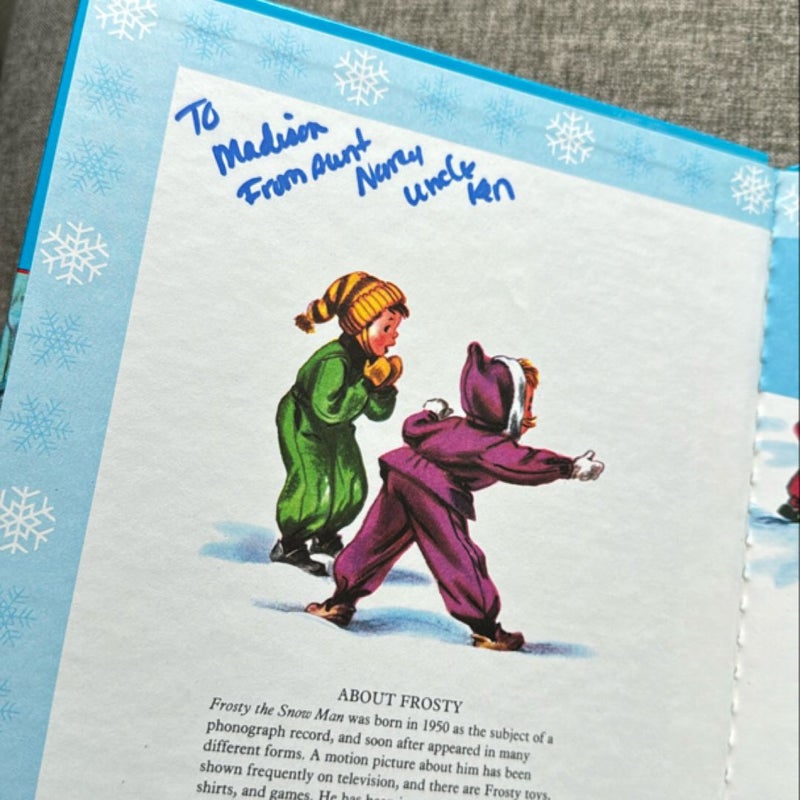 To
Madison
From Aunt
Nancy
Uncle
Ken
ABOUT FROSTY
Frosty the Snow Man was born in 1950 as the subject of a
phonograph record, and soon after appeared in many
different forms. A motion picture about him has been
shown frequently on television, and there are Frosty toys,
shirts, and games. He has